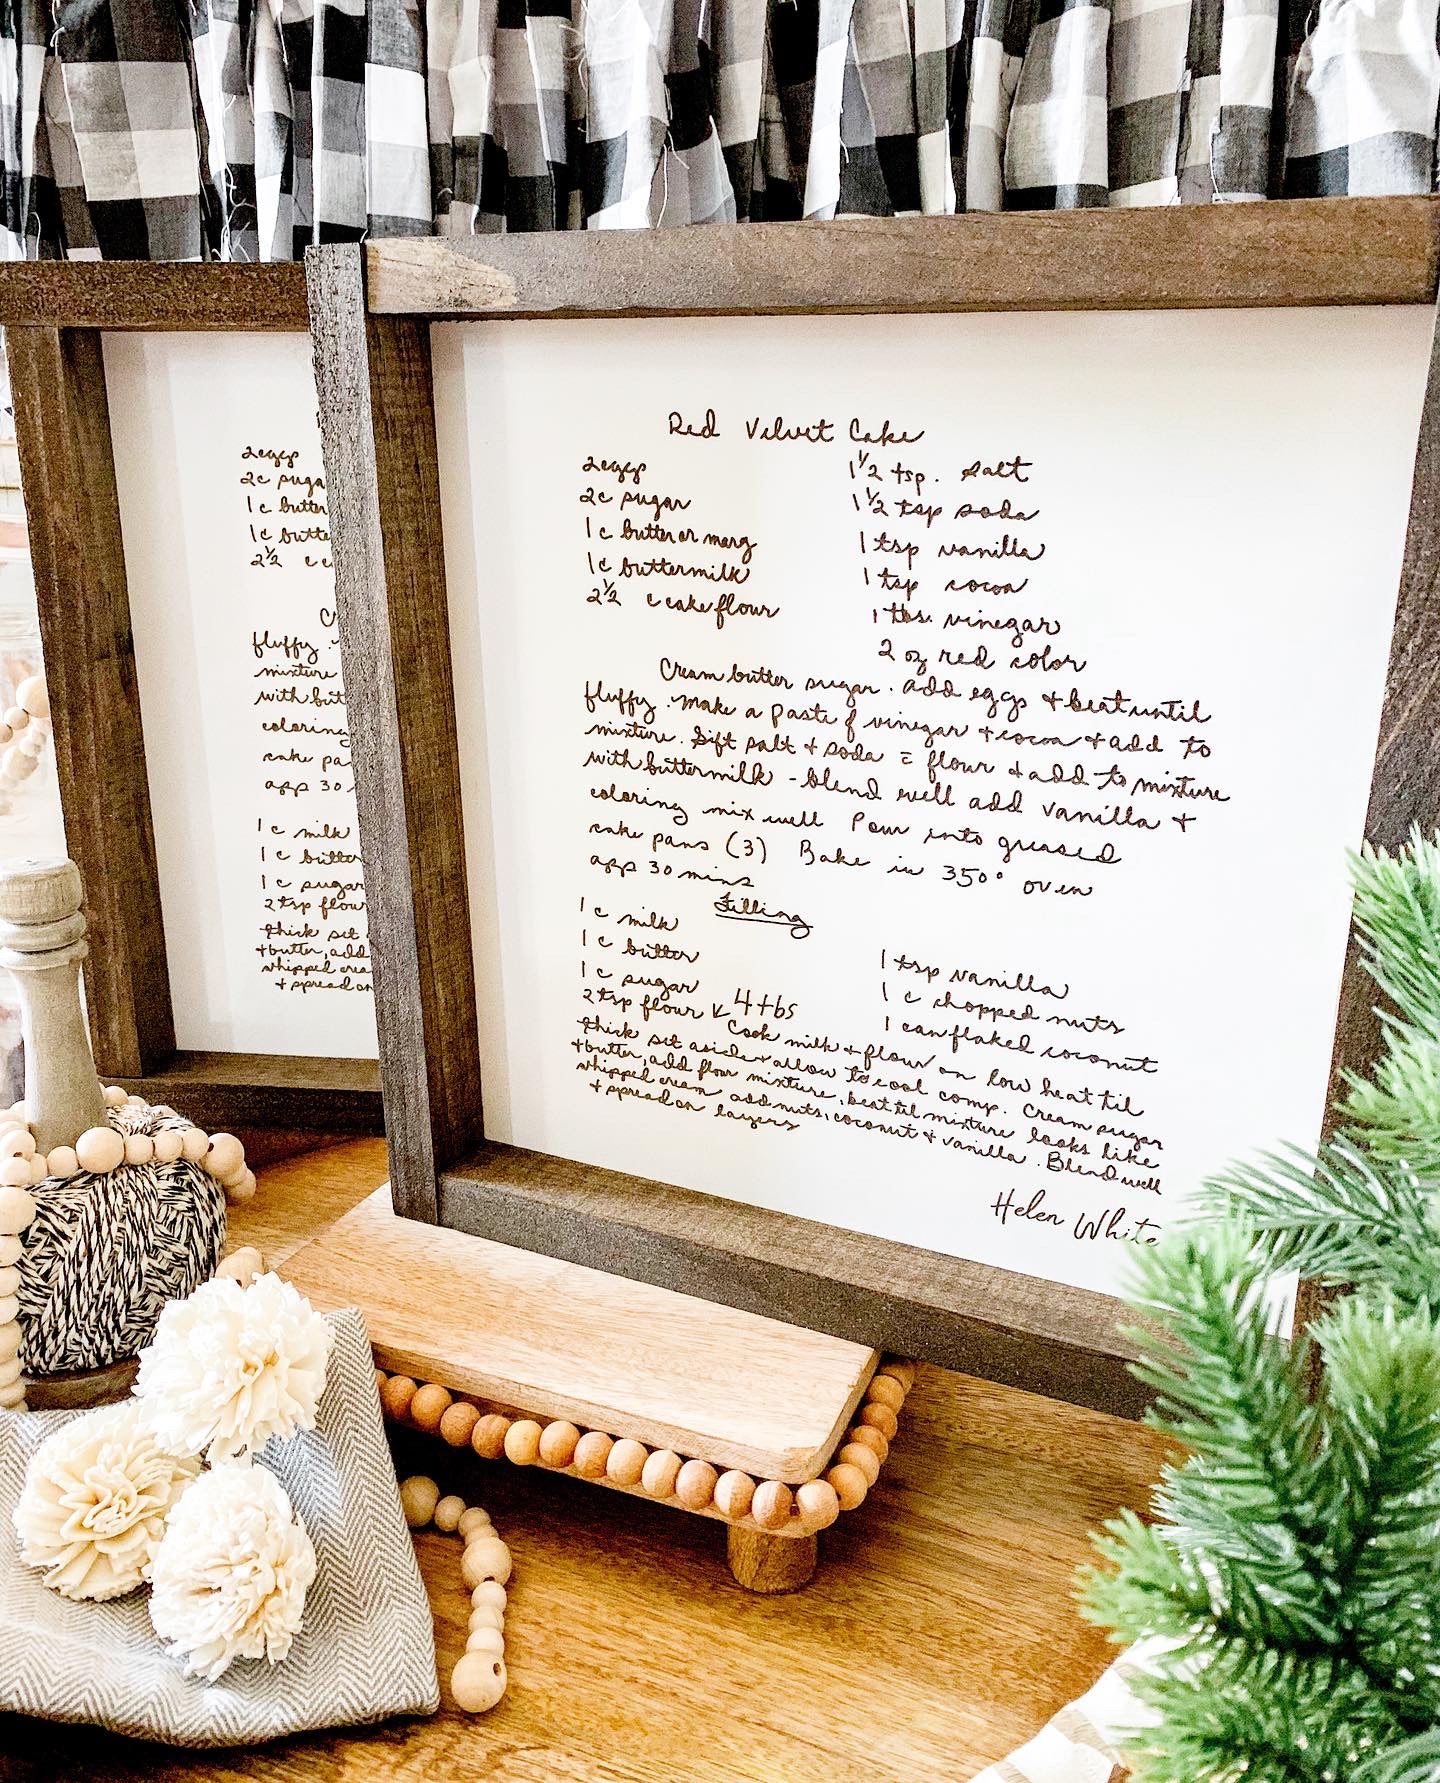 Red Velvet Cake
2 eggs
2c sugar
1c butter or marg
1c buttermilk
2½ c cake flour
1½ tsp. salt
1½ tsp soda
1 tsp vanilla
1 tsp cocoa
1 tbs. vinegar
2 oz red color
Cream butter sugar. add eggs + beat until
fluffy. Make a paste of vinegar + cocoa + add to
mixture. Sift salt + soda = flour + add to mixture
with buttermilk - blend well add vanilla +
coloring mix well Pour into greased
cake pans (3) Bake in 350° oven
app 30 mins
Filling
1 c milk
1 c butter
1 c sugar
2 tsp flour 4 tbs
1 tsp vanilla
1 c chopped nuts
1 can flaked coconut
Cook milk + flour on low heat til
thick set aside + allow to cool comp. Cream sugar
+ butter, add flour mixture, beat til mixture looks like
whipped cream add nuts, coconut + vanilla. Blend well
+ spread on layers
Helen White
2 eggs
2c suga
1c butter
1c butte
2½ c c
C
fluffy.
mixture
with but
coloring
cake pa
app 30
1 c milk
1 c butter
1 c sugar
2 tsp flour
thick set
+ butter, add
whipped crea
+ spread on